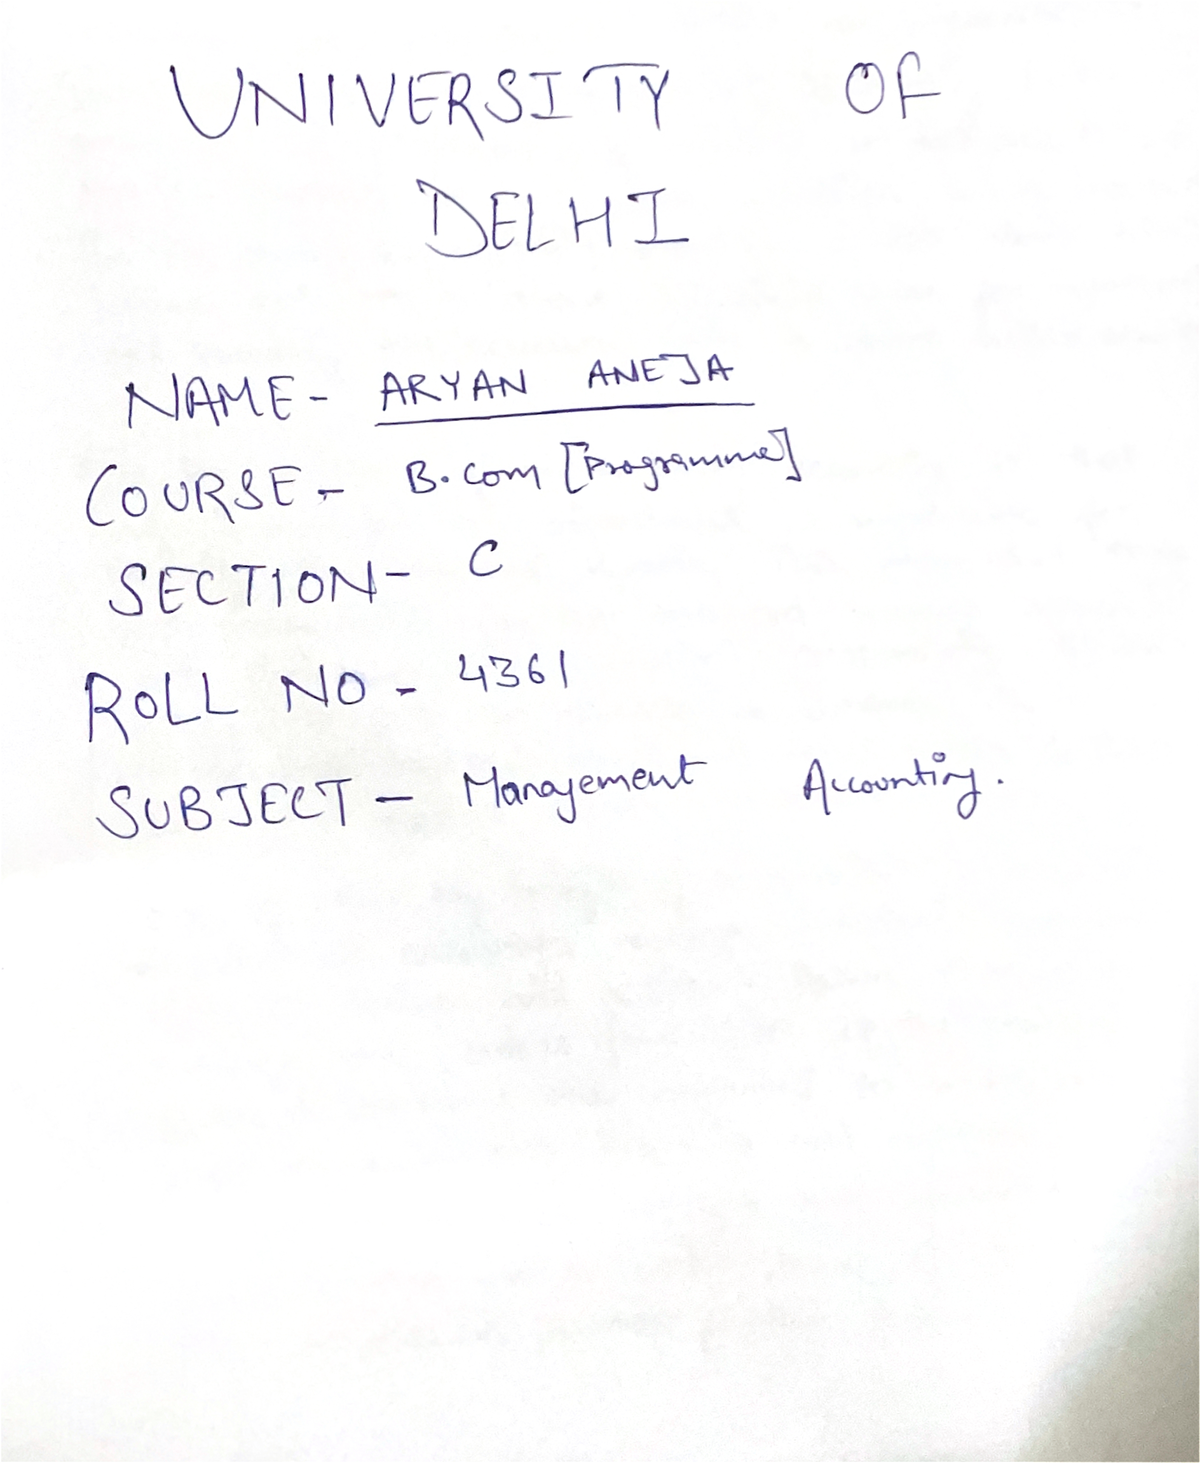 UNIVERSITY OF
DELHI
NAME- ARYAN ANEJA
COURSE- B.com [Programme]
SECTION- C
ROLL NO - 4361
SUBJECT - Management Accounting.